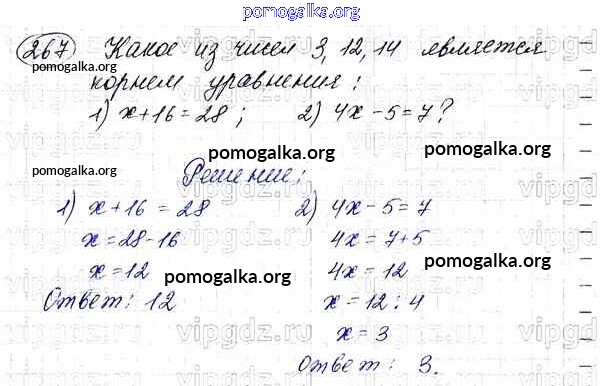 pomogalka.org
267 Какое из чисел 3, 12, 14 является
pomogalka.org
корнем уравнения:
pomogalka.org
1) x+16=28; 2) 4x-5=7?
pomogalka.org
pomogalka.org
pomogalka.org
Решение:
vipgdz.ru
1) x+16=28
x=28-16
x=12
Ответ: 12
2) 4x-5=7
4x=7+5
4x=12
x=12:4
x=3
Ответ: 3.
pomogalka.org
pomogalka.org
vipgdz.ru